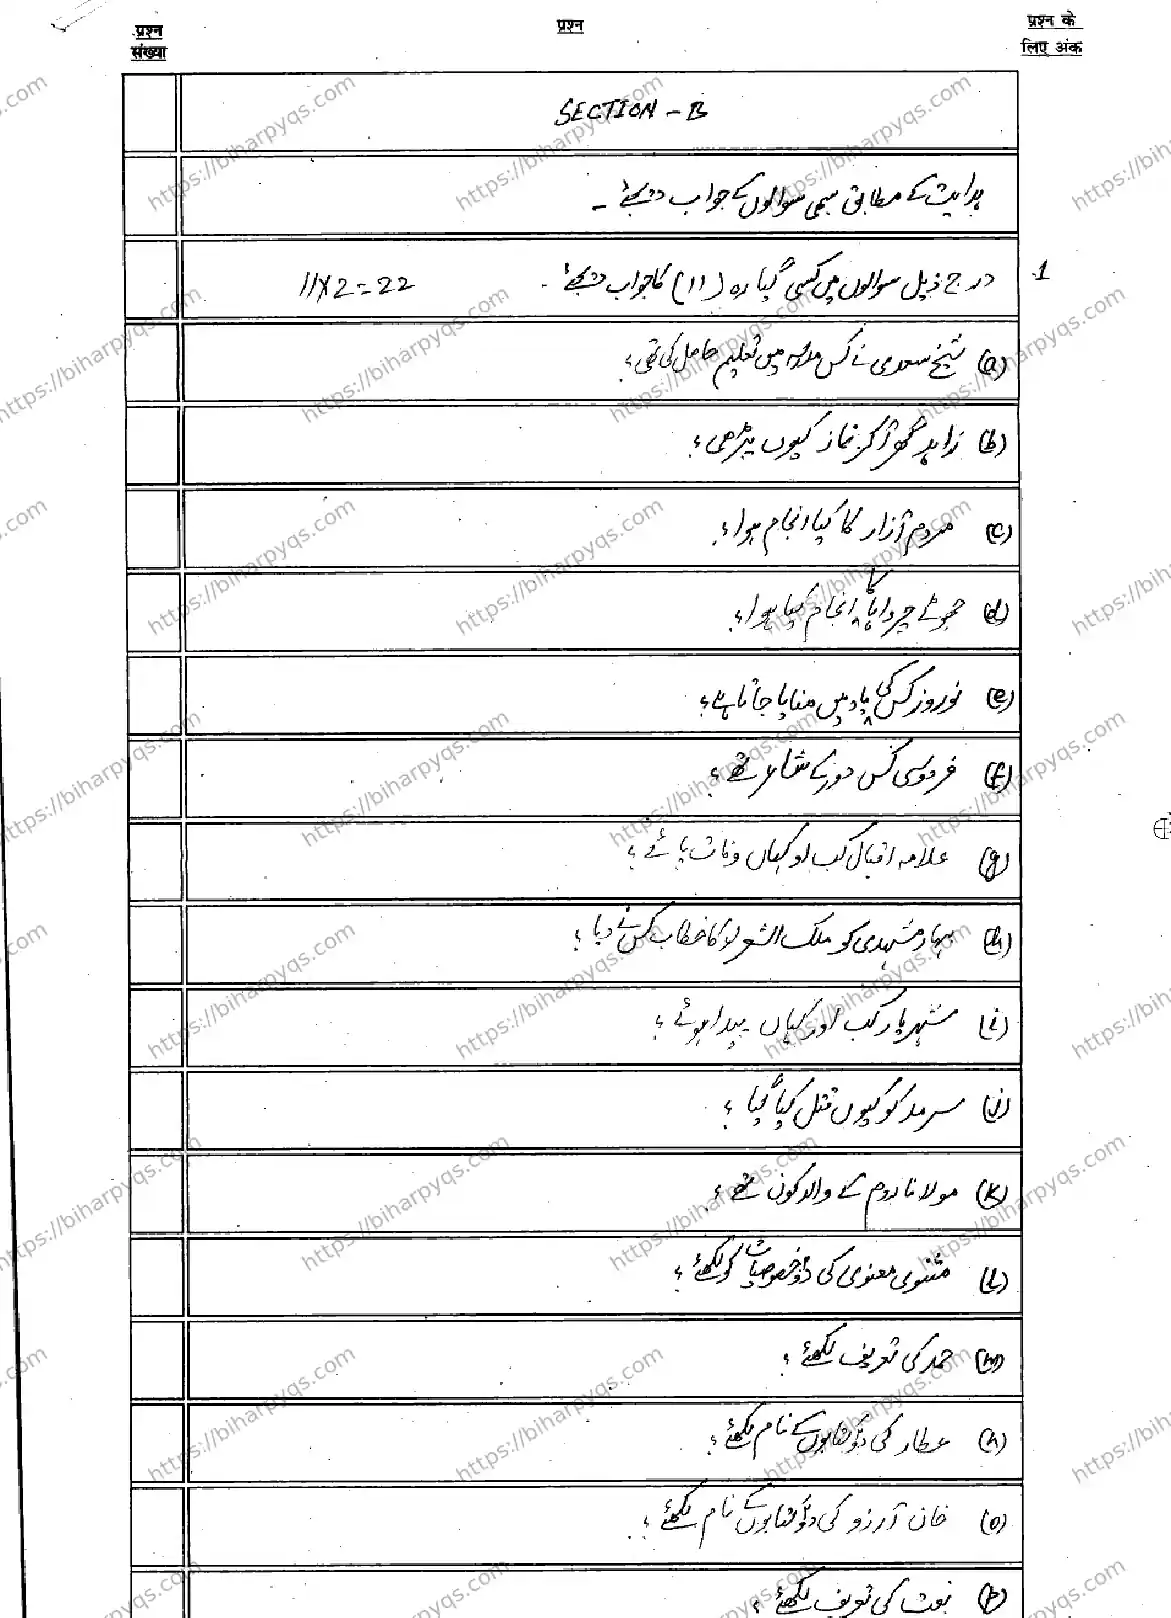 प्रश्न संख्या
प्रश्न
प्रश्न के लिए अंक
SECTION - B
ہدایت کے مطابق سبھی سوالوں کے جواب دیجئے۔
1. درج ذیل سوالوں میں کسی گیارہ (11) کا جواب دیجئے۔ 11X2=22
(a) شیخ سعدی نے کس مدرسہ میں تعلیم حاصل کی تھی؟
(b) زاہد گھر آکر نماز کیوں پڑھی؟
(c) مردم آزار کا کیا انجام ہوا؟
(d) جھوٹے چرواہا کا انجام کیا ہوا؟
(e) نوروز کس کی یاد میں منایا جاتا ہے؟
(f) فردوسی کس دور کے شاعر تھے؟
(g) علامہ اقبال کب او کہاں وفات پائے؟
(h) بہار مشہدی کو ملک الشعراء کا خطاب کس نے دیا؟
(i) شہریار کب اور کہاں پیدا ہوئے؟
(j) سرمد کو کیوں قتل کیا گیا؟
(k) مولانا روم کے والد کون تھے؟
(l) مثنوی معنوی کی دو خصوصیات کو لکھئے؟
(m) حمد کی تعریف لکھئے؟
(n) عطار کی دو کتابوں کے نام لکھئے؟
(o) خان آرزو کی دو کتابوں کے نام لکھئے؟
(p) نعت کی تعریف لکھئے؟
https://biharpyqs.com